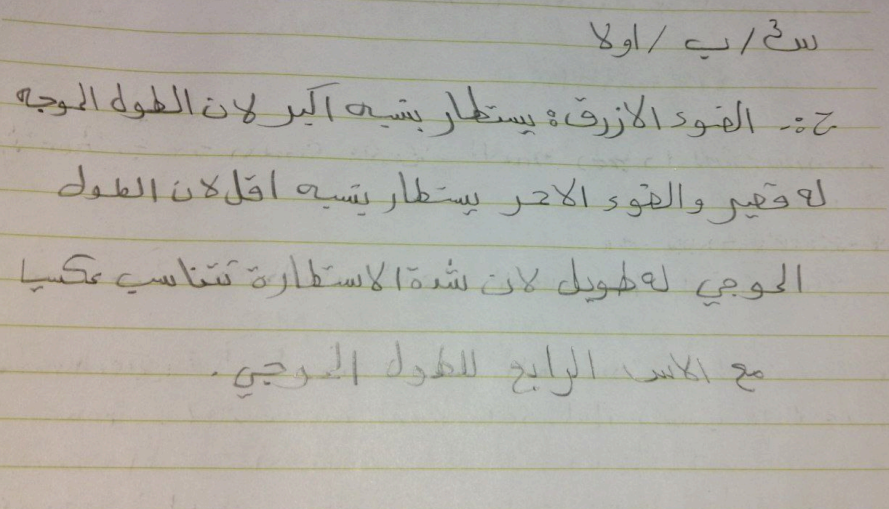 س٣ / ب / اولا
ج :- الضوء الازرق : يستطار بنسبه اكبر لان الطول الموجه
له قصير والضوء الاحر يستطار بنسبه اقل لان الطول
الموجي له طويل لان شدة الاستطارة تتناسب عكسيا
مع الاس الرابع للطول الموجي .